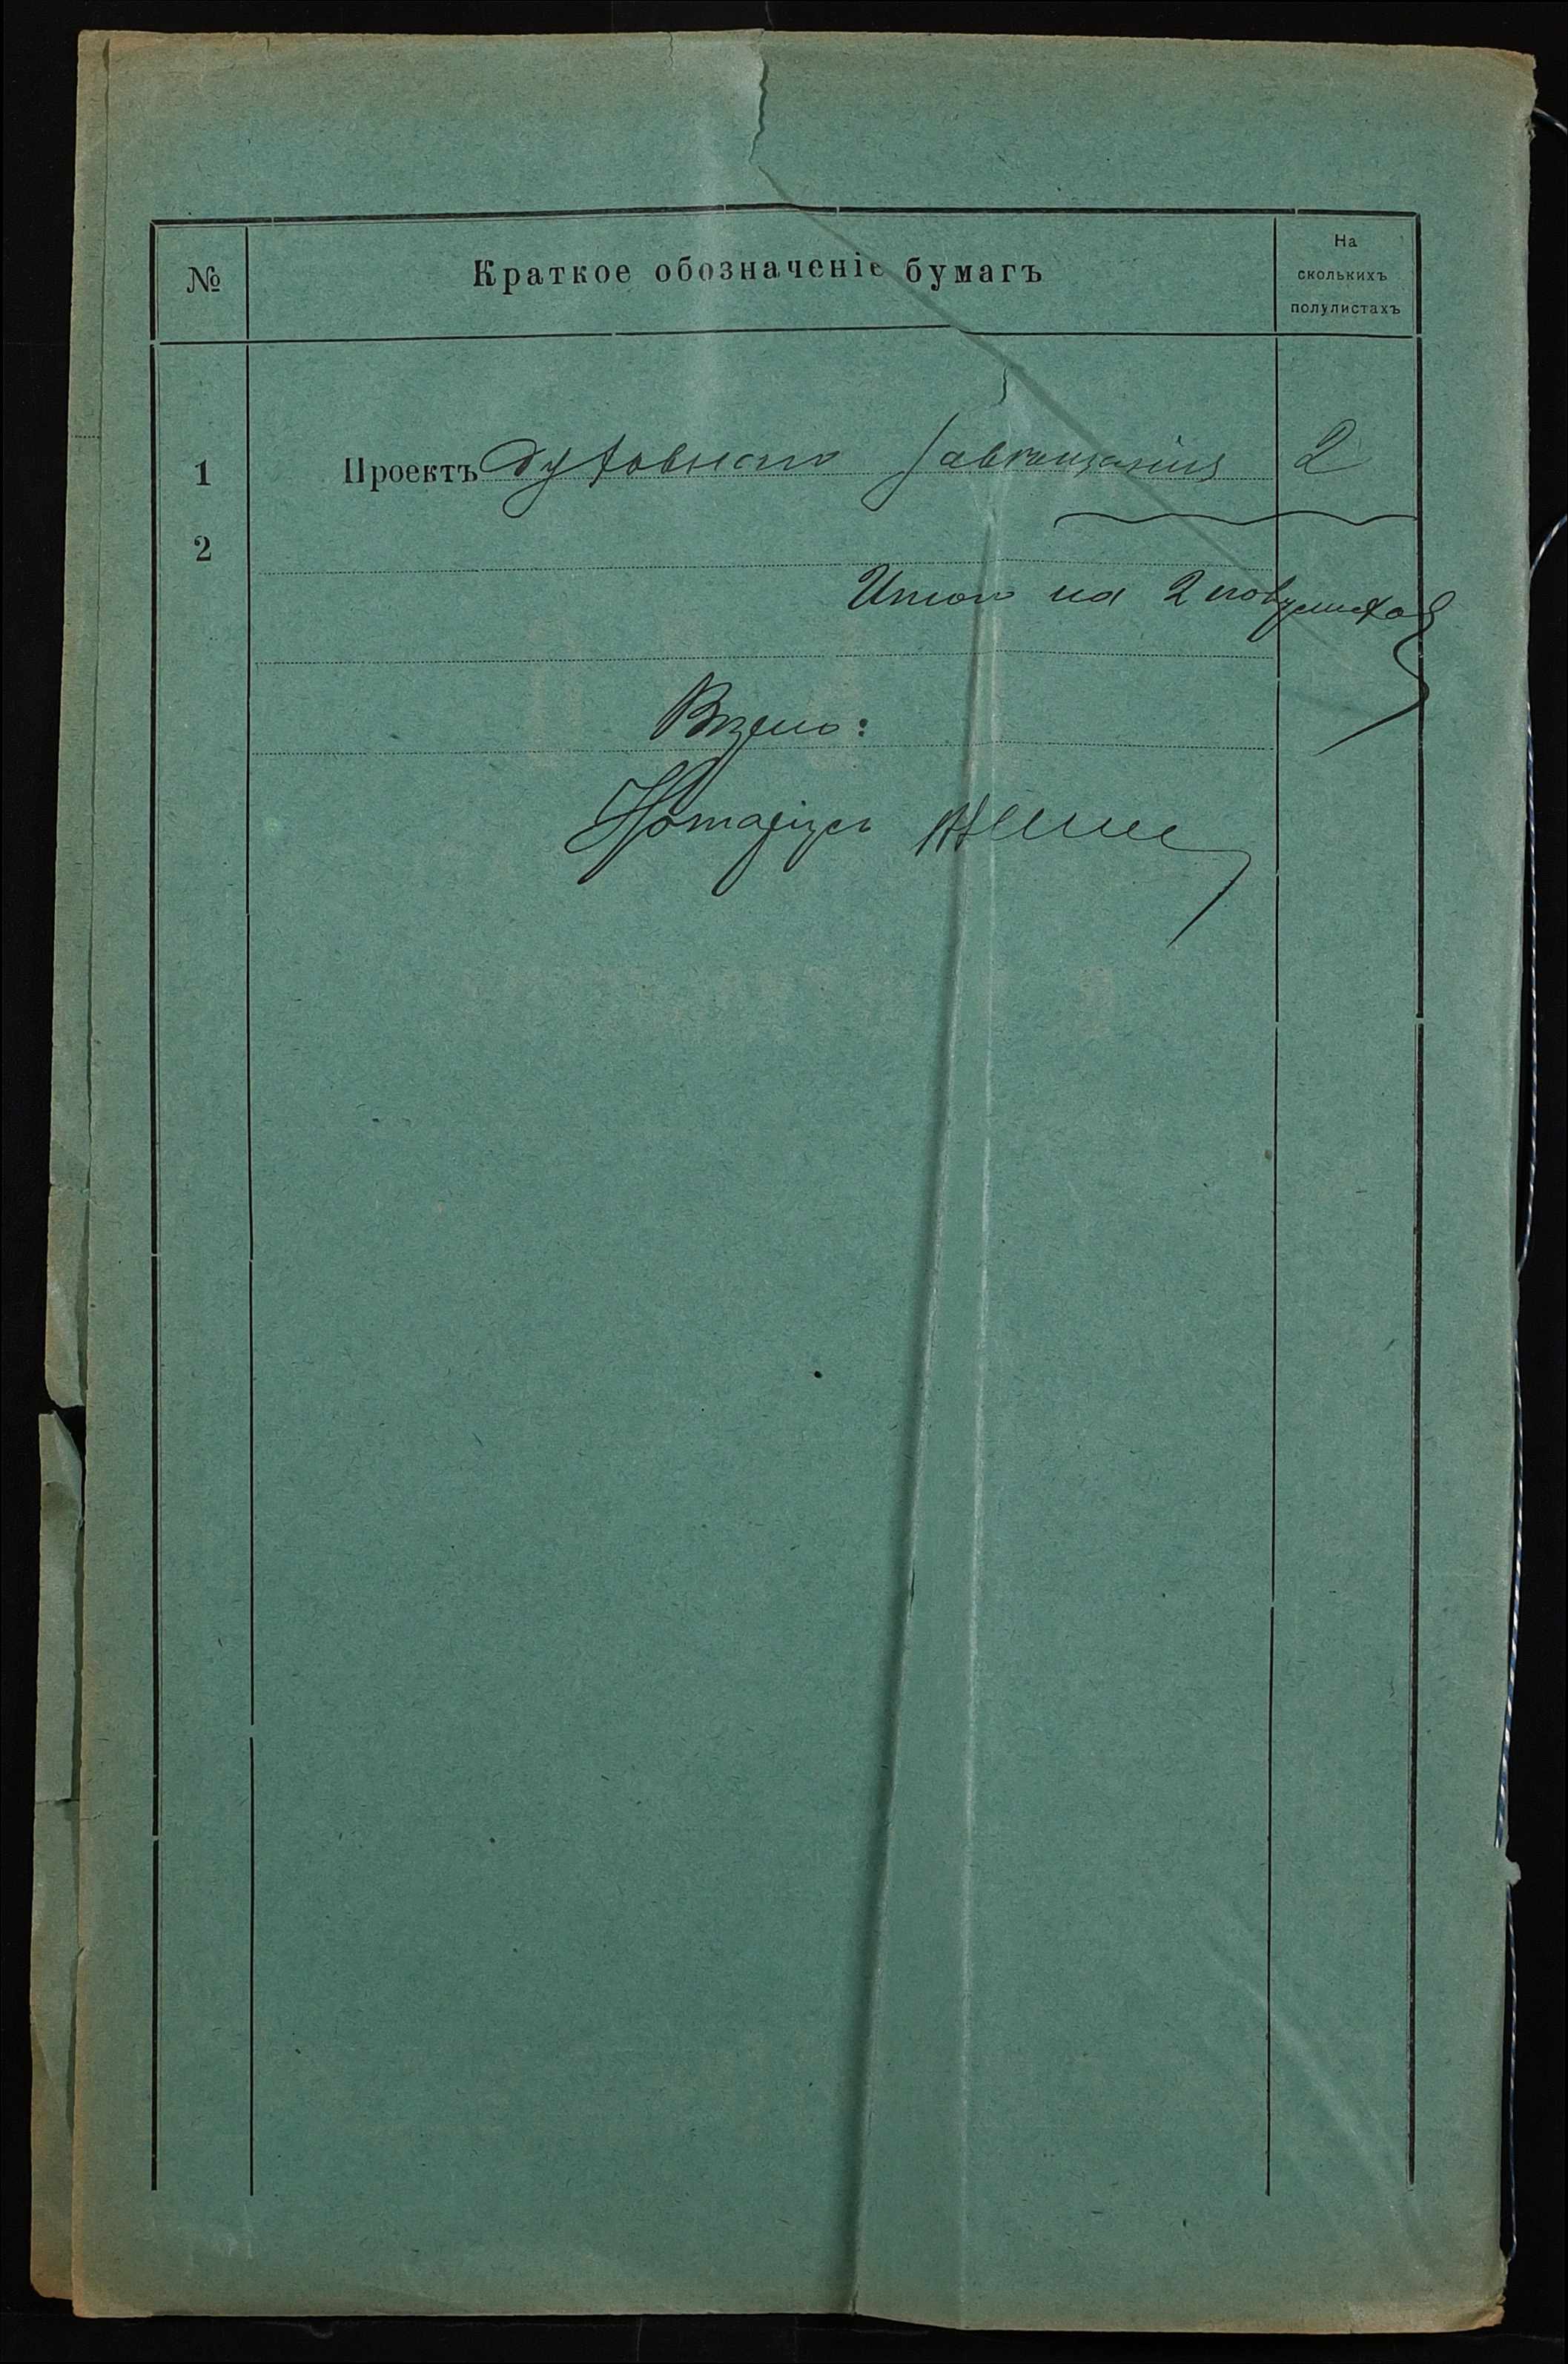 №
Краткое обозначеніе бумагъ
На
сколькихъ
полулистахъ
1 Проектъ духовнаго завѣщанія 2
2
Итого на 2 полулистахъ
Нотаріусъ